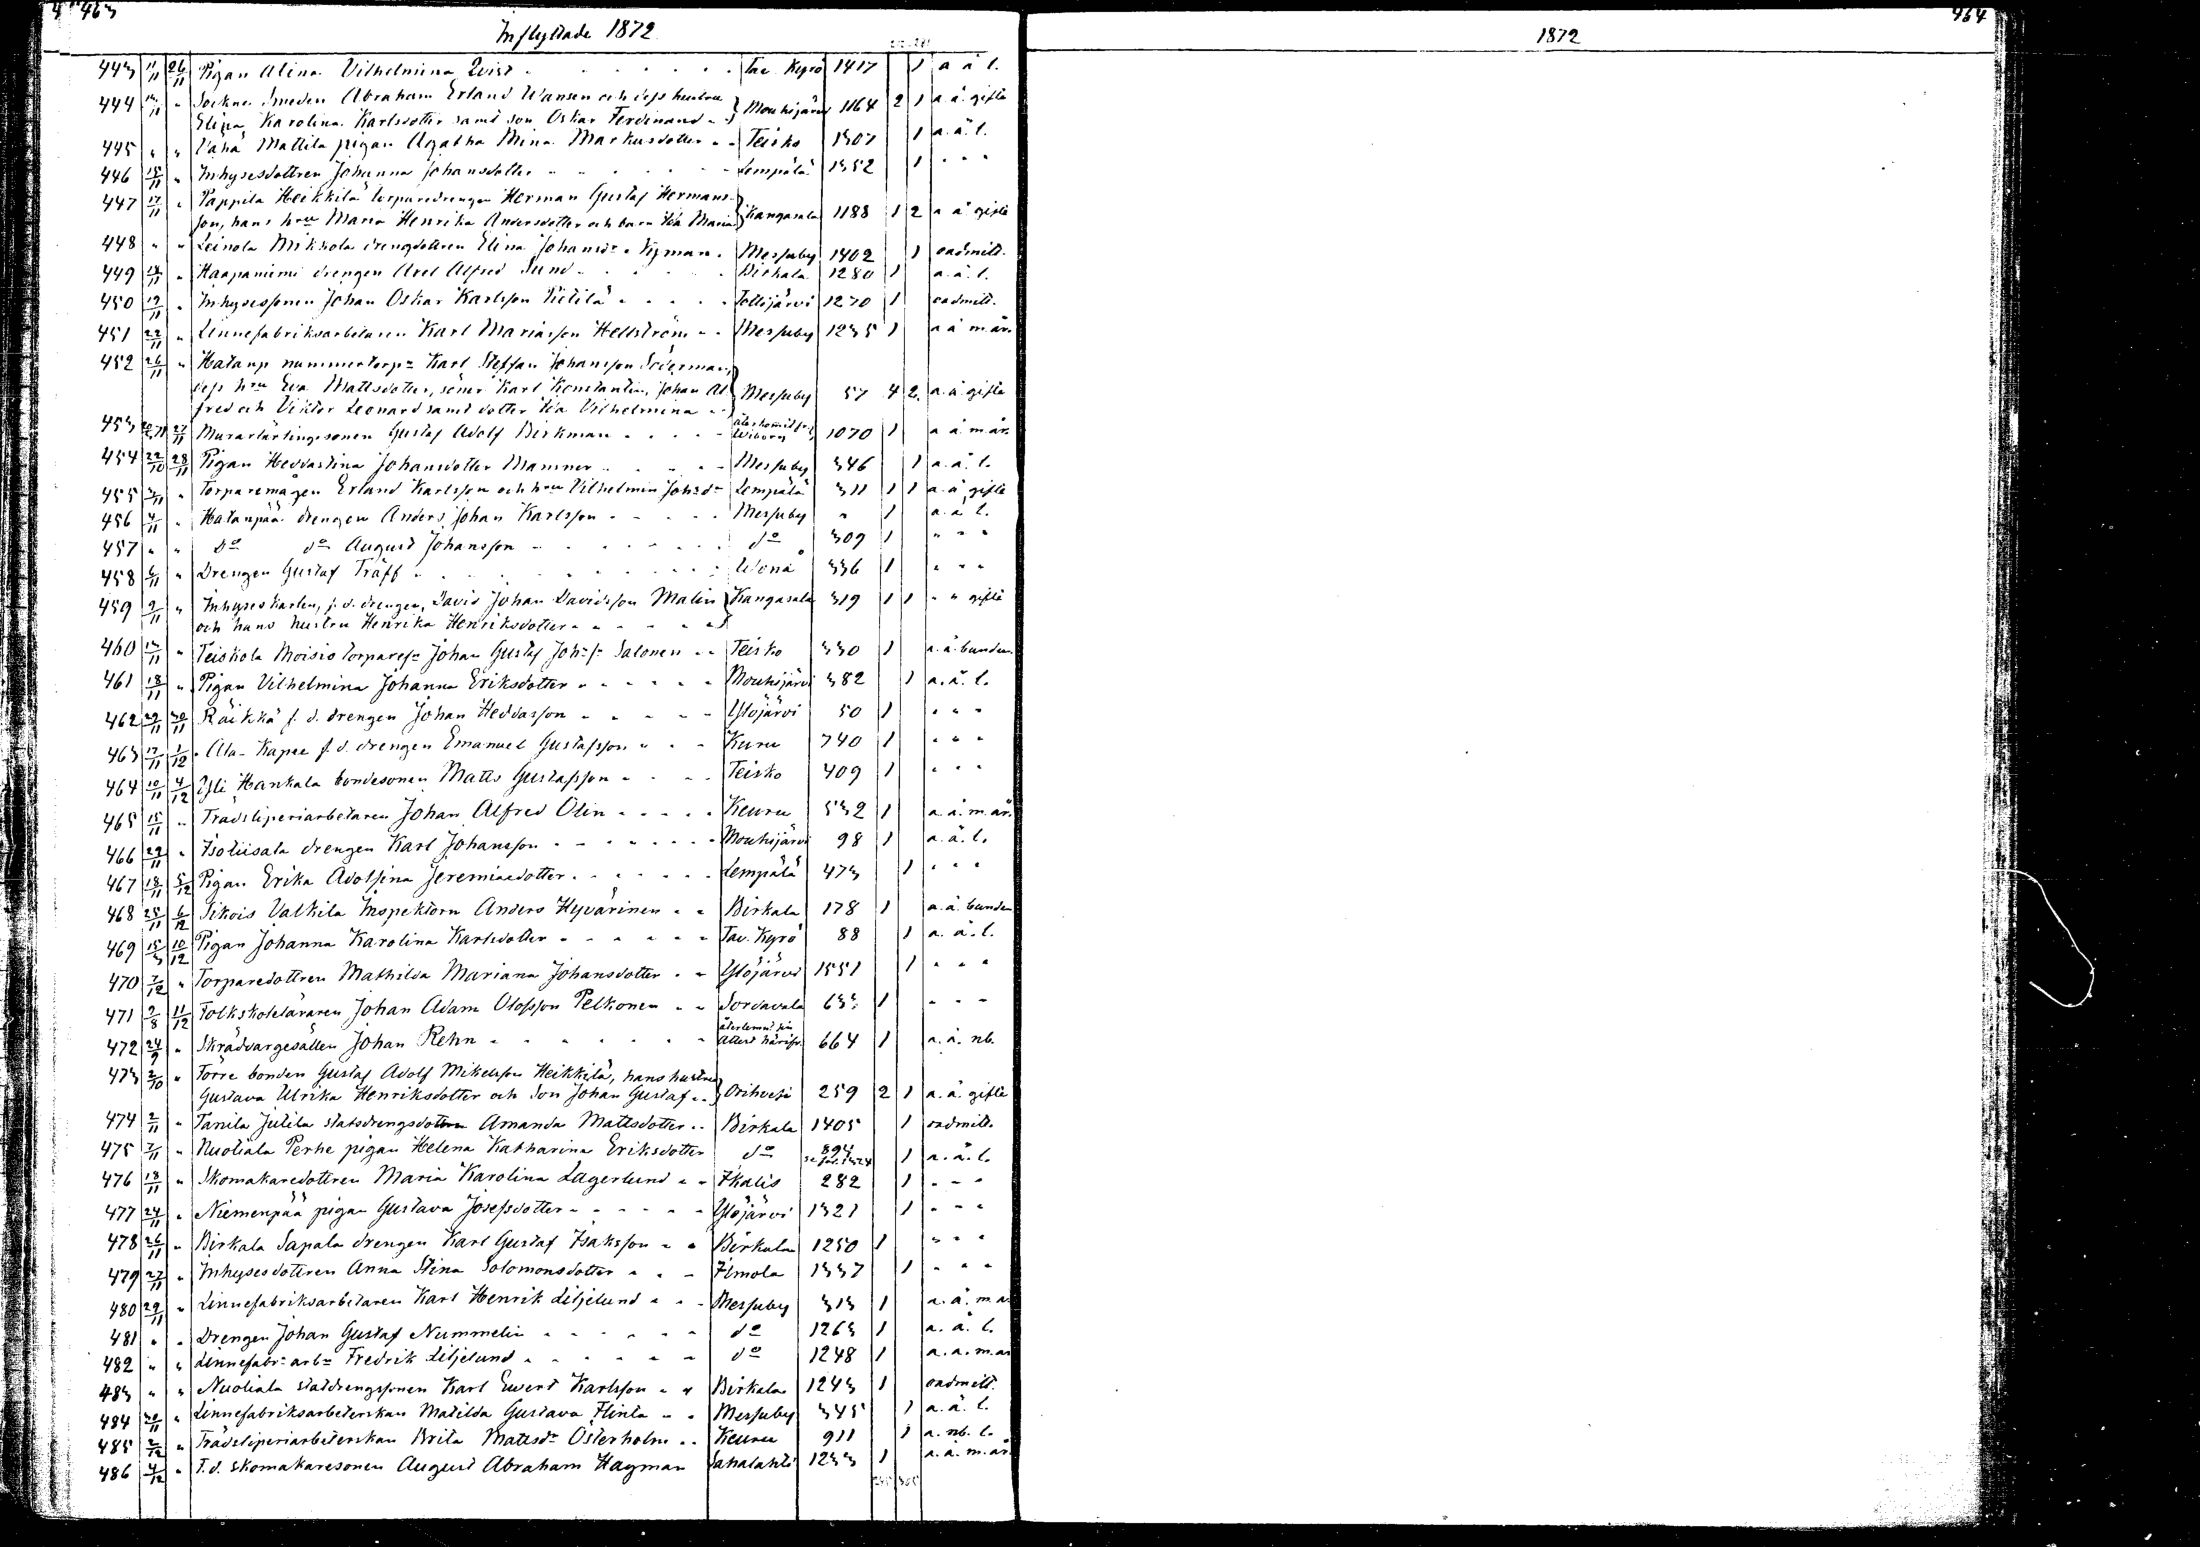 463
Inflyttade 1872
443 11/11 26/11 Pigan Alina Vilhelmina Qvist - Tav. Kyrö 1417 1 a ä l.
444 14/11 " Sockne Smeden Abraham Erland Wansen och dess hustru
Elina Karolina Karlsdotter samt son Oskar Ferdinand - Mouhijärvi 1164 2 1 a ä. gifta
445 " " Vähä Mattila pigan Agatha Mina Markusdotter - - Teisko 1307 1 a. ä. l.
446 15/11 " Inhysesdottren Johanna Johansdotter - Lempälä 1352 1 " " "
447 17/11 " Pappila Heikkilä torparedrengen Herman Gustaf Hermans-
son, hans hru Maria Henrika Andersdotter och barn Ida Maria Kangasala 1188 1 2 a ä gifta
448 " " Leinola Mikkola drengdottren Elina Johansdr Nyman. Messuby 1402 1 oadmitt.
449 18/11 " Haapaniemi drengen Axel Alfred Sund - Birkala 1280 1 a. ä. l.
450 19/11 " Inhysessonen Johan Oskar Karlsson Pietilä - Tottijärvi 1270 1 oadmitt.
451 22/11 " Linnefabriksarbetaren Karl Mariasson Hellström - - Messuby 1235 1 a ä m. är.
452 26/11 " Hatanp nummertorpr Karl Steffan Johansson Söderman,
dess hru Eva Mattsdotter, söner Karl Konstantin, Johan Al
fred och Viktor Leonard samt dotter Ida Vilhelmina - Messuby 57 4 2. a. ä gifta
453 27/11 Murarlärlingssonen Gustaf Adolf Birkman - återkomit fr. Wiborg 1070 1 a ä m. är.
454 22/10 28/11 Pigan Hedvastina Johansdotter Mamner - Messuby 346 1 a. ä. l.
455 3/11 " Torparemågen Erland Karlsson och hru Vilhelmin Johsdr Lempälä 311 1 1 a. ä gifta
456 4/11 " Hatanpää drengen Anders Johan Karlsson - Messuby " 1 a. ä. l.
457 " " do do August Johansson - do 309 1 " " "
458 6/11 " Drengen Gustaf Träff - Wånå 336 1 " " "
459 9/11 " Inhyseskarlen, f. d. drengen, David Johan Davidsson Malin
och hans hustru Henrika Henriksdotter - Kangasala 319 1 1 " " gifta
460 14/11 " Teiskola Moisio torparesn Johan Gustaf Johs s. Salonen - - Teisko 330 1 a. ä. bunden
461 18/11 " Pigan Vilhelmina Johanna Eriksdotter - Mouhijärvi 382 1 a. ä. l.
462 29/11 30/11 Räikkä f. d. drengen Johan Hedvasson - Ylöjärvi 50 1 " " "
463 17/11 1/12 Ala-Kapee f. d. drengen Emanuel Gustafsson - Kuru 740 1 " " "
464 10/11 4/12 Yli Hankala bondesonen Matts Gustafsson - Teisko 409 1 " " "
465 15/11 " Träsliperiarbetaren Johan Alfred Olin - Keuru 532 1 a. ä. m. är.
466 29/11 " Isoliisala drengen Karl Johansson - Mouhijärvi 98 1 a. ä. l.
467 18/11 5/12 Pigan Erika Adolfina Jeremiaedotter - Lempälä 473 1 " " "
468 25/11 6/12 Pikois Valkila Inspektorn Anders Hyvärinen - - Birkala 178 1 a. ä. bunden
469 15/3 10/12 Pigan Johanna Karolina Karlsdotter - Tav. Kyrö 88 1 a. ä. l.
470 7/12 " Torparedottren Mathilda Mariana Johansdotter - - Ylöjärvi 1551 1 " " "
471 9/8 11/12 Folkskoleläraren Johan Adam Olofsson Pelkonen - - Sordavala 633 1 " " "
472 24/9 " Skräddargesällen Johan Rehn - återlemnt sin attest härifr. 664 1 a. ä. nb.
473 2/10 " Torre bonden Gustaf Adolf Mikelsson Heikkilä, hans hustru
Gustava Ulrika Henriksdotter och Son Johan Gustaf - Orihvesi 259 2 1 a. ä. gifta
474 2/11 " Tanila Jutila statsdrengsdottren Amanda Mattsdotter - Birkala 1405 1 oadmitt.
475 7/11 " Nuoliala Perhe pigan Helena Katharina Eriksdotter do 894 1 a. ä. l.
476 13/11 " Skomakaredottren Maria Karolina Lagerlund - - Ikalis 282 1 " " "
477 24/11 " Niemenpää pigan Gustava Josefsdotter - Ylöjärvi 1321 1 " " "
478 26/11 " Birkala Sapala drengen Karl Gustaf Isaksson - - Birkala 1250 1 " " "
479 27/11 " Inhysesdottren Anna Stina Solomonsdotter - Ilmola 1337 1 " " "
480 29/11 " Linnefabriksarbetaren Karl Henrik Liljelund - - Messuby 313 1 a. ä. m. är
481 " " Drengen Johan Gustaf Nummelin - do 1263 1 a. ä. l.
482 " " Linnefabr. arbr Fredrik Liljelund - do 1248 1 a. ä. m. är
483 " " Nuoliala statdrengssonen Karl Ewert Karlsson - - Birkala 1243 1 oadmitt.
484 30/11 " Linnefabriksarbeterskan Matilda Gustava Flinta - - Messuby 345 1 a. ä. l.
485 2/12 " Träsliperiarbeterskan Brita Mattsdr Österholm - - Keuru 911 1 a. nb. l.
486 4/12 " F. d. skomakaresonen August Abraham Hagman Sahalahti 1233 1 a. ä. m. är.
464
1872